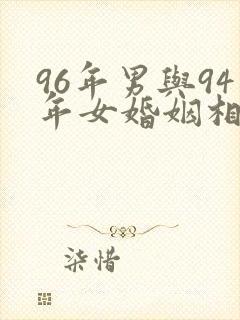 96年男與94
年女婚姻相
柒惜